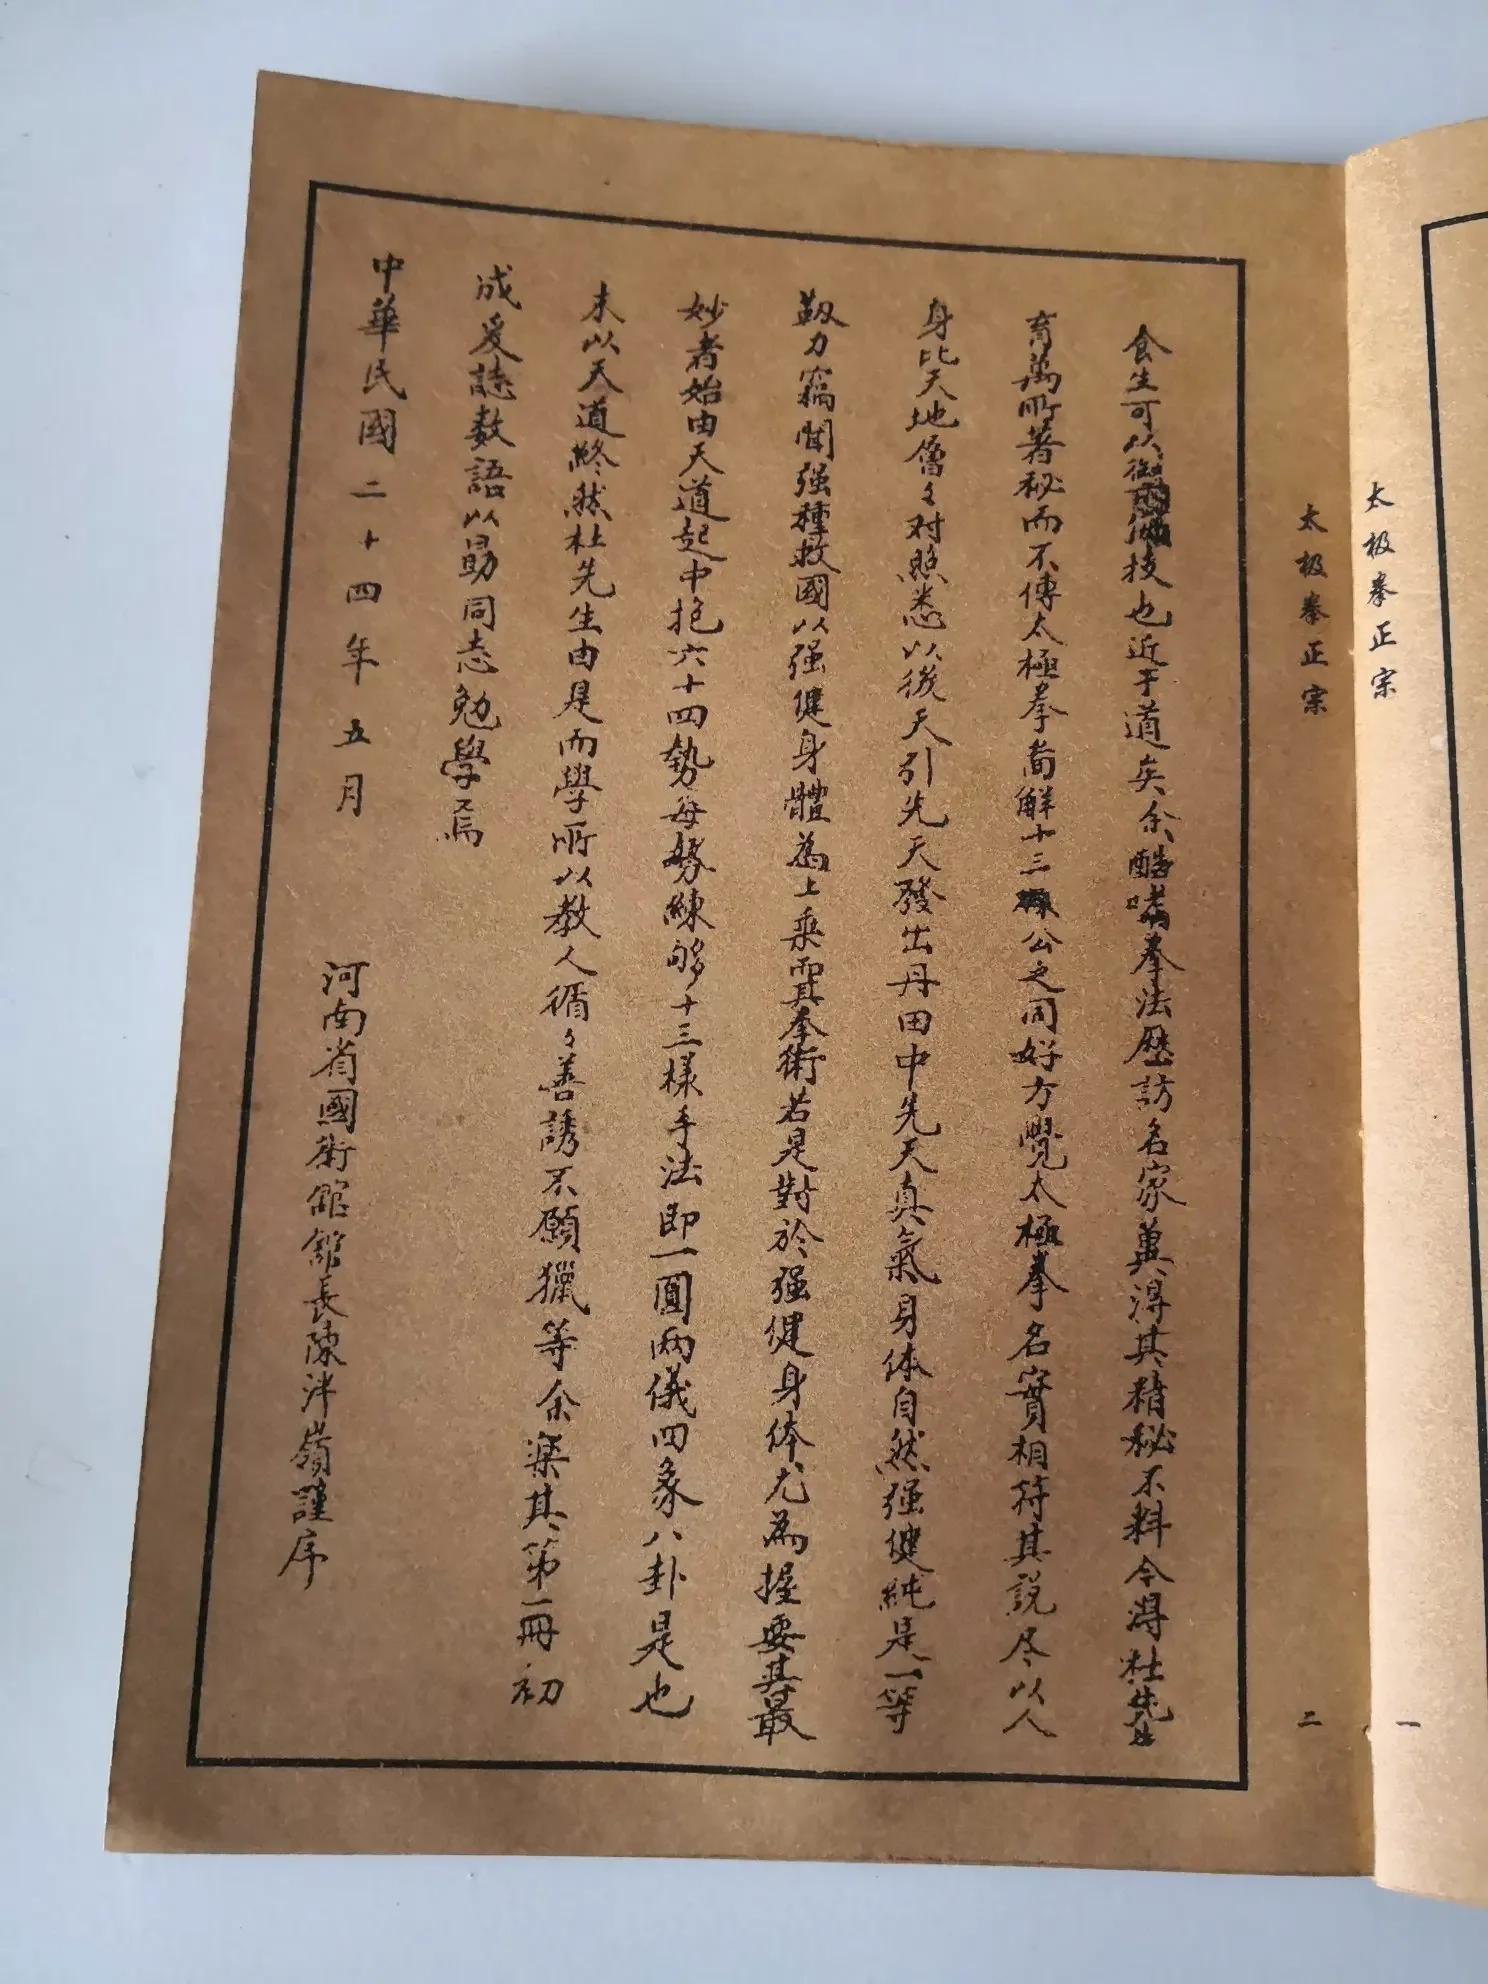 太极拳正宗
一
太极拳正宗
二
食生可以御技也近于道矣余酷嗜拳法歷訪名家冀得其精秘不料今得杜先生
育萬所著秘而不傳太極拳啇解十三公之同好方覺太極拳名實相符其說尽以人
身比天地層々对照悉以後天引先天發出丹田中先天真氣身体自然强健純是一等
靱力竊聞强種救國以强健身體為上乘習拳術若是對於强健身体尤為握要其最
妙者始由天道起中抱六十四勢每勢練够十三樣手法即一圓两儀四象八卦是也
末以天道終然杜先生由是而學所以教人循々善誘不願獵等余樂其第一冊初
成爰誌数語以勗同志勉學焉
中華民國二十四年五月
河南省國術館館長陳泮嶺謹序